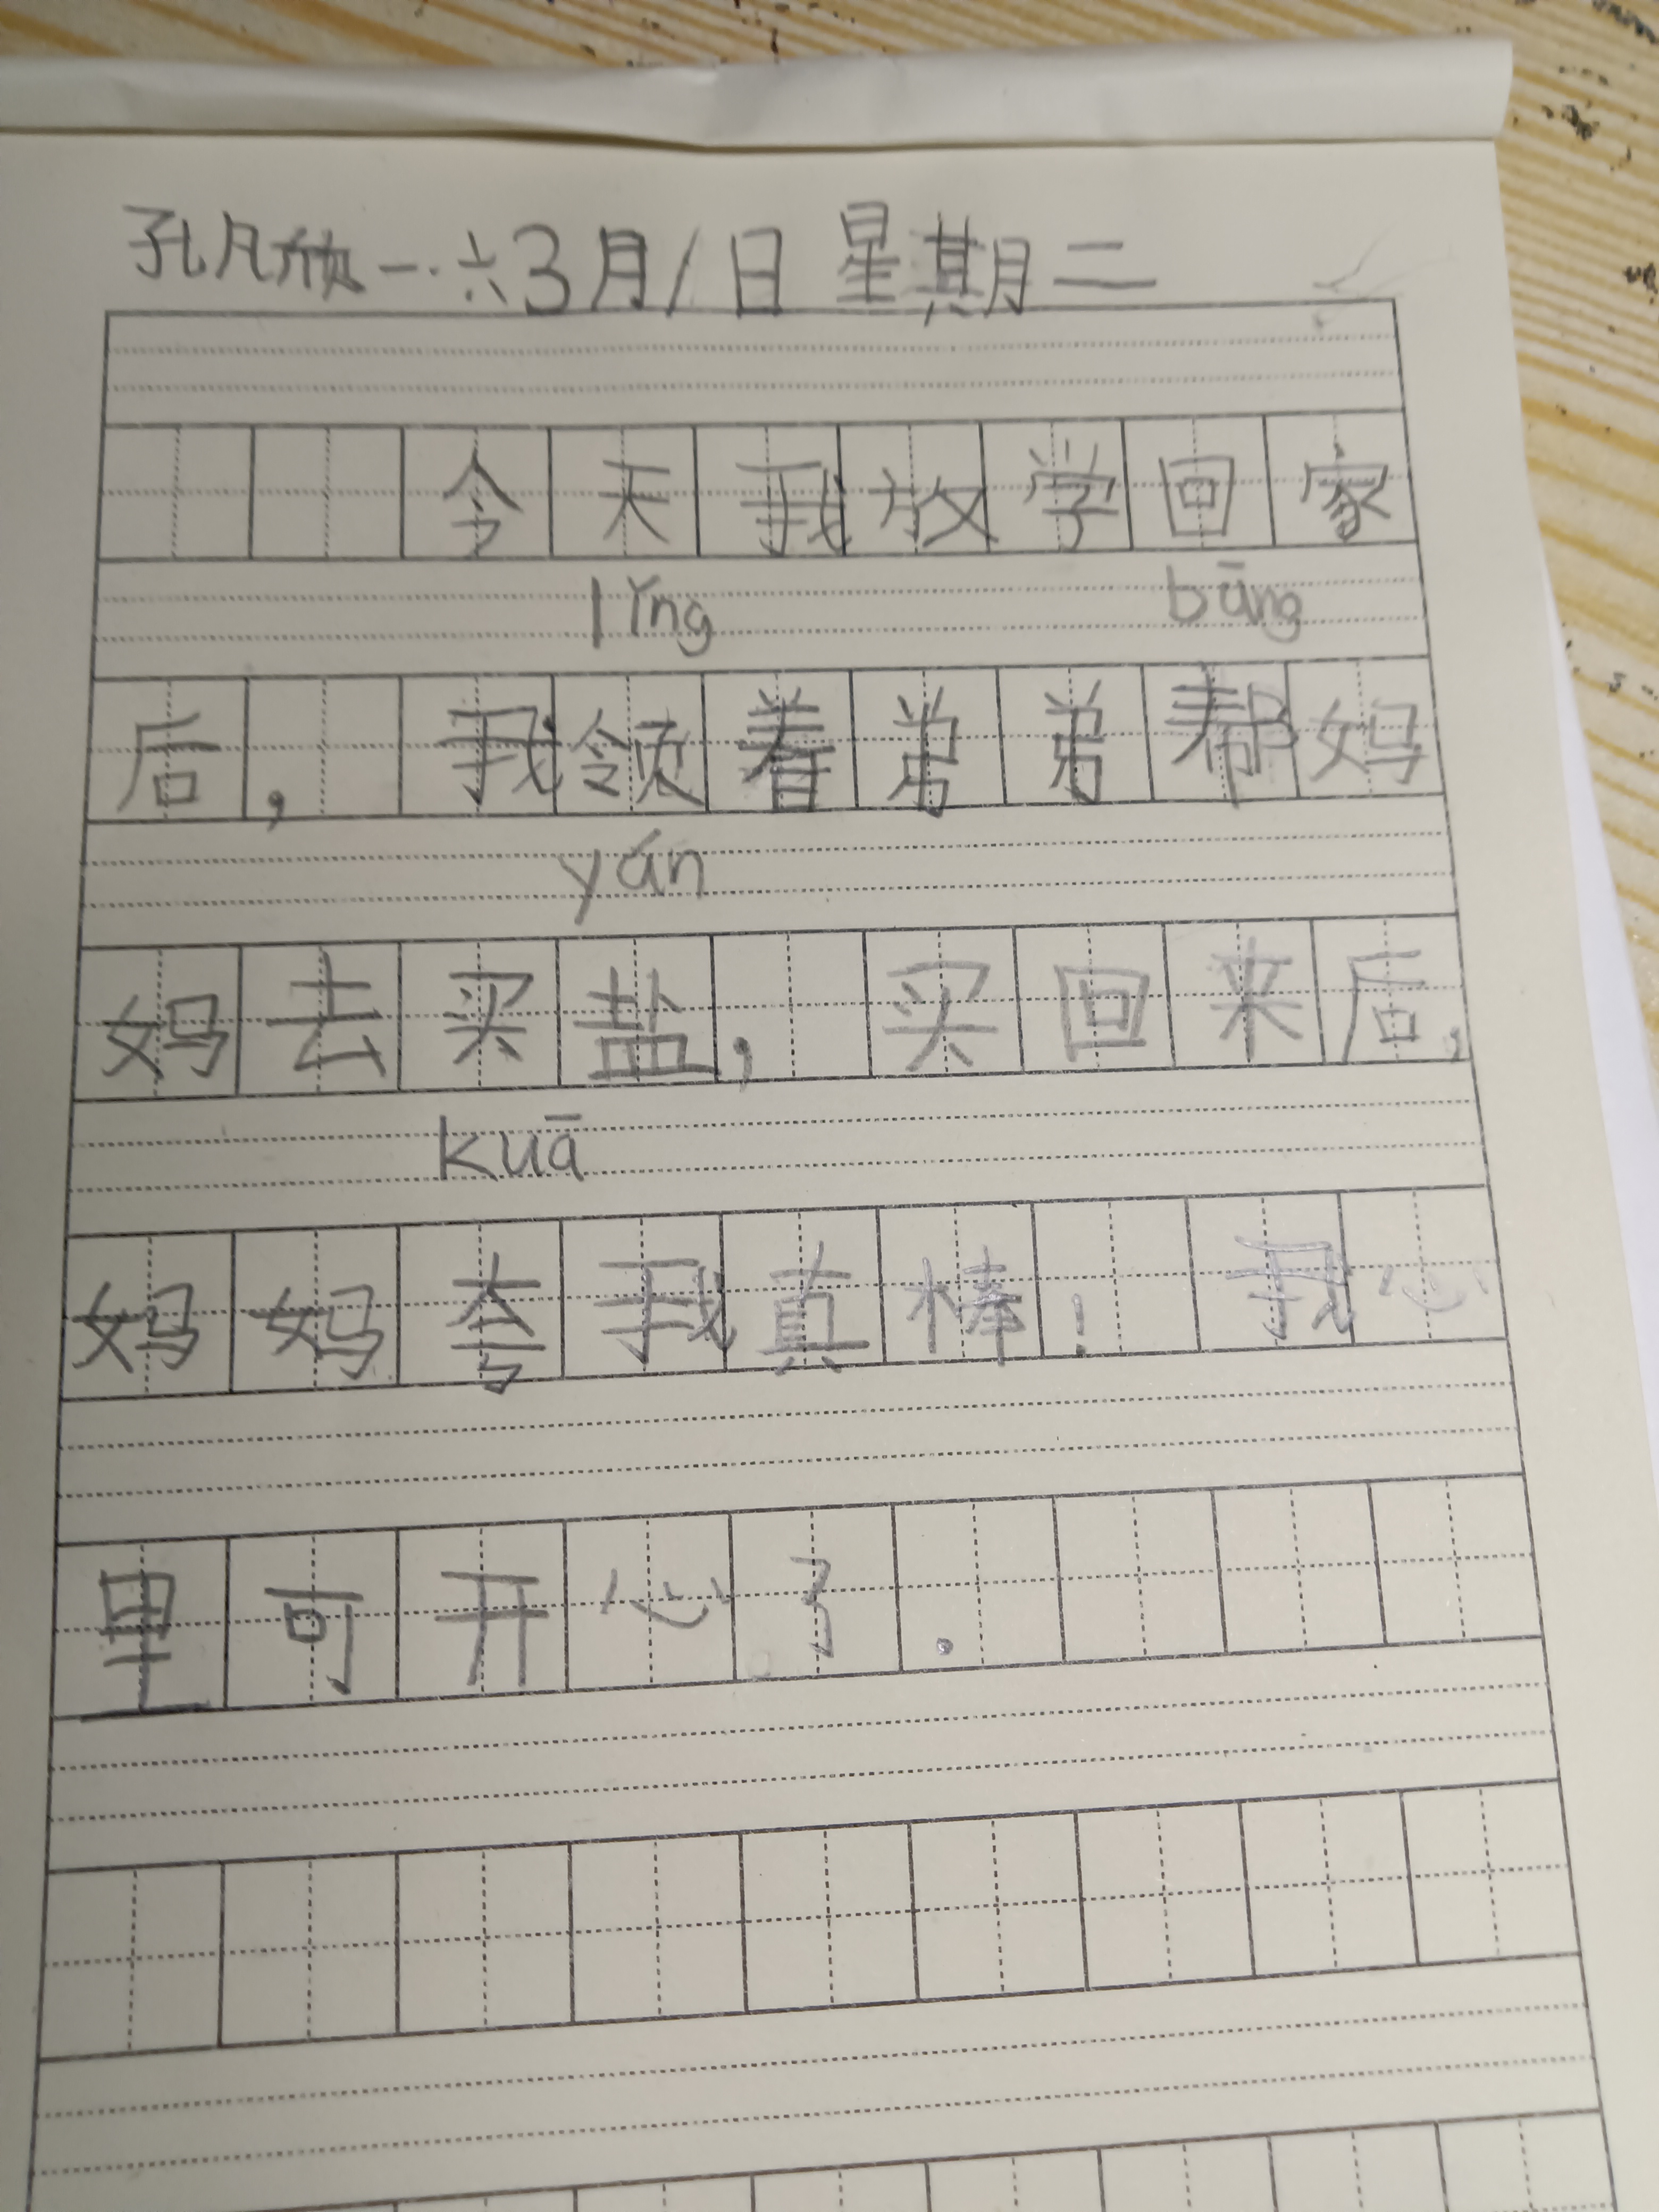 孔凡欣一.六3月1日 星期二
今天我放学回家
lǐng bāng
后，我领着弟弟帮妈
yán
妈去买盐，买回来后，
kuā
妈妈夸我真棒！我心
里可开心了.